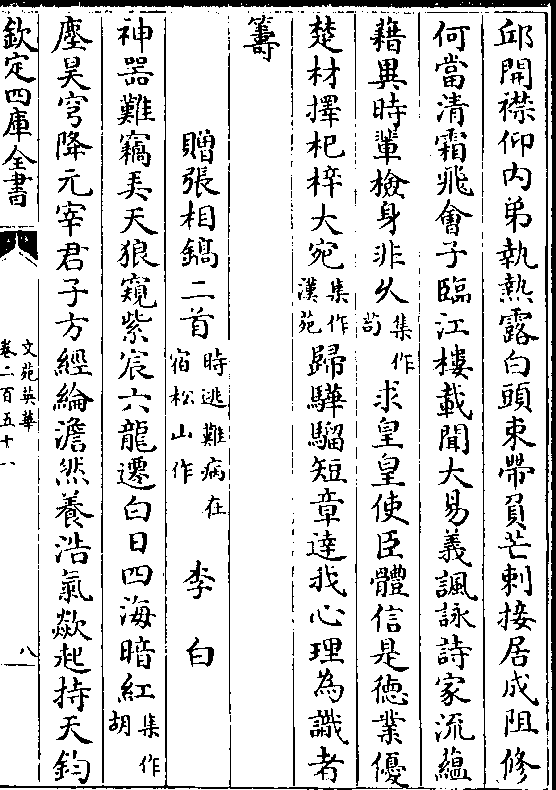 邱開襟仰内弟執熱露白頭束帶負芒刺接居成阻修
何當清霜飛會子臨江樓載聞大易義諷詠詩家流藴
藉異時軰檢身非久集作苟求皇皇使臣體信是徳業優
楚材擇杞梓大宛集作漢苑歸驊騮短章達我心理為識者
籌
贈張相鎬二首時逃難病在宿松山作 李白
神器難竊弄天狼窺紫宸六龍遷白日四海暗紅集作胡
塵昊穹降元宰君子方經綸澹然養浩氣歘起持天鈞
欽定四庫全書
文苑英華
卷二百五十八
八